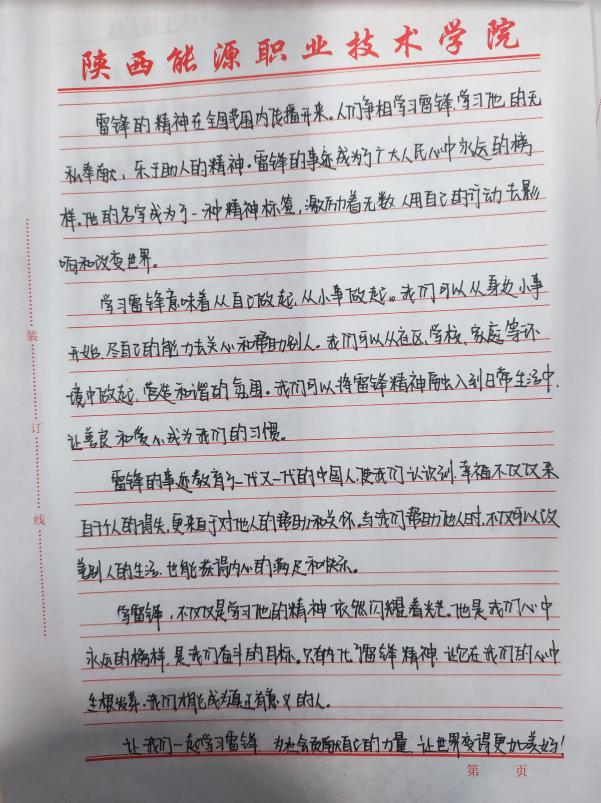 陕西能源职业技术学院
雷锋的精神在全国范围内传播开来。人们争相学习雷锋,学习他的无
私奉献、乐于助人的精神。雷锋的事迹成为了广大人民心中永远的榜
样。他的名字成为了一种精神标签,激励着无数人用自己的行动去影
响和改变世界。
学习雷锋意味着从自己做起,从小事做起。我们可以从身边小事
开始,尽自己的能力去关心和帮助别人。我们可以从社区、学校、家庭等环
境中做起,营造和谐的氛围。我们可以将雷锋精神融入到日常生活中,
让善良和爱心成为我们的习惯。
雷锋的事迹教育了一代又一代的中国人,使我们认识到,幸福不仅仅来
自于个人的得失,更来自于对他人的帮助和关怀。当我们帮助他人时,不仅可以改
善别人的生活,也能获得内心的满足和快乐。
学雷锋,不仅仅是学习他的精神依然闪耀着光芒。他是我们心中
永远的榜样,是我们奋斗的目标。只有内化了雷锋精神,让它在我们的心中
生根发芽,我们才能成为真正有意义的人。
让我们一起学习雷锋,为社会贡献自己的力量,让世界变得更加美好!
装
订
线
第 页